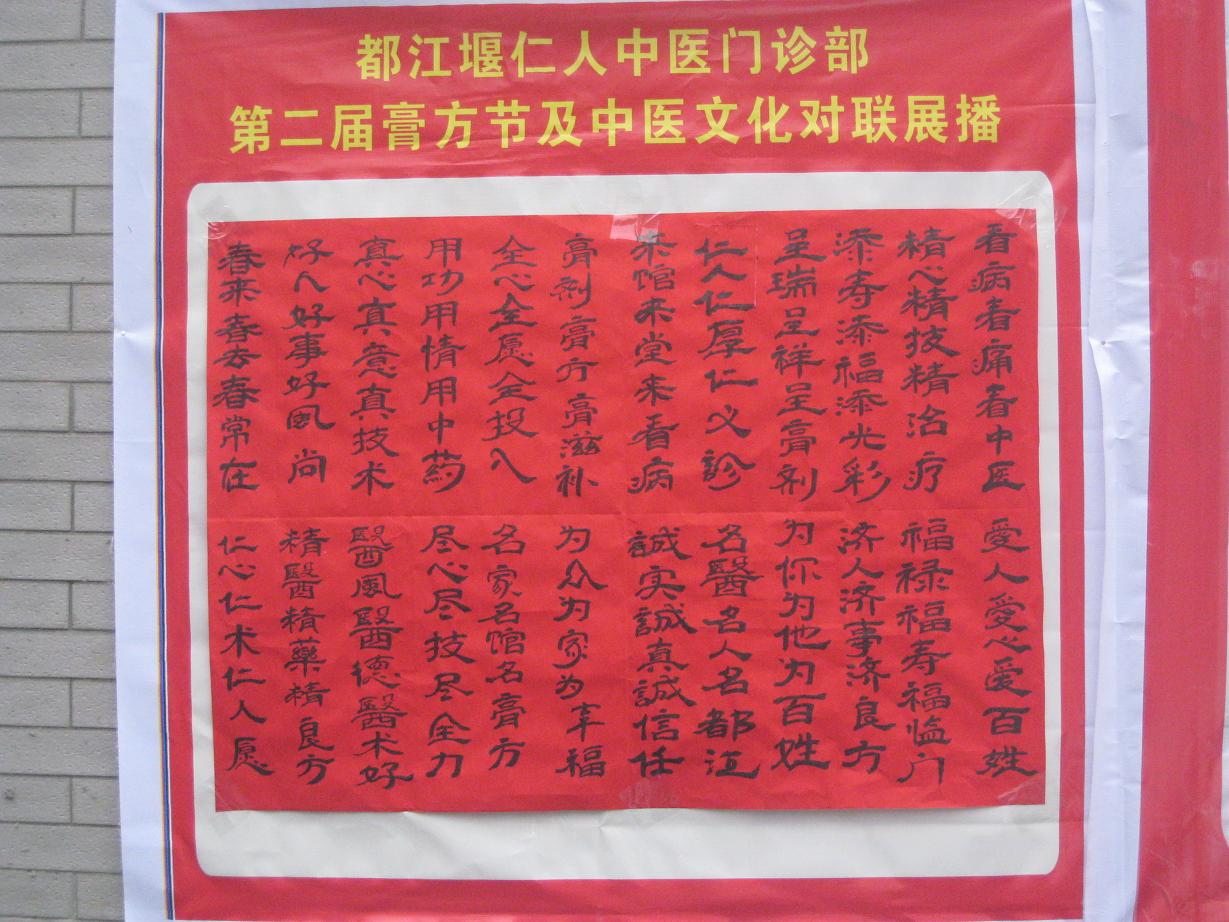 都江堰仁人中医门诊部
第二届膏方节及中医文化对联展播
看病看痛看中医
愛人愛心愛百姓
精心精技精治疗
福禄福寿福临门
添寿添福添光彩
济人济事济良方
呈瑞呈祥呈膏剂
为你为他为百姓
仁人仁厚仁义診
名醫名人名都江
来馆来堂来看病
誠实誠真誠信任
膏剂膏方膏滋补
为众为家为幸福
全心全愿全投入
名家名馆名膏方
用功用情用中葯
尽心尽技尽全力
真心真意真技术
醫風醫德醫术好
好人好事好風尚
精醫精藥精良方
春来春去春常在
仁心仁术仁人愿